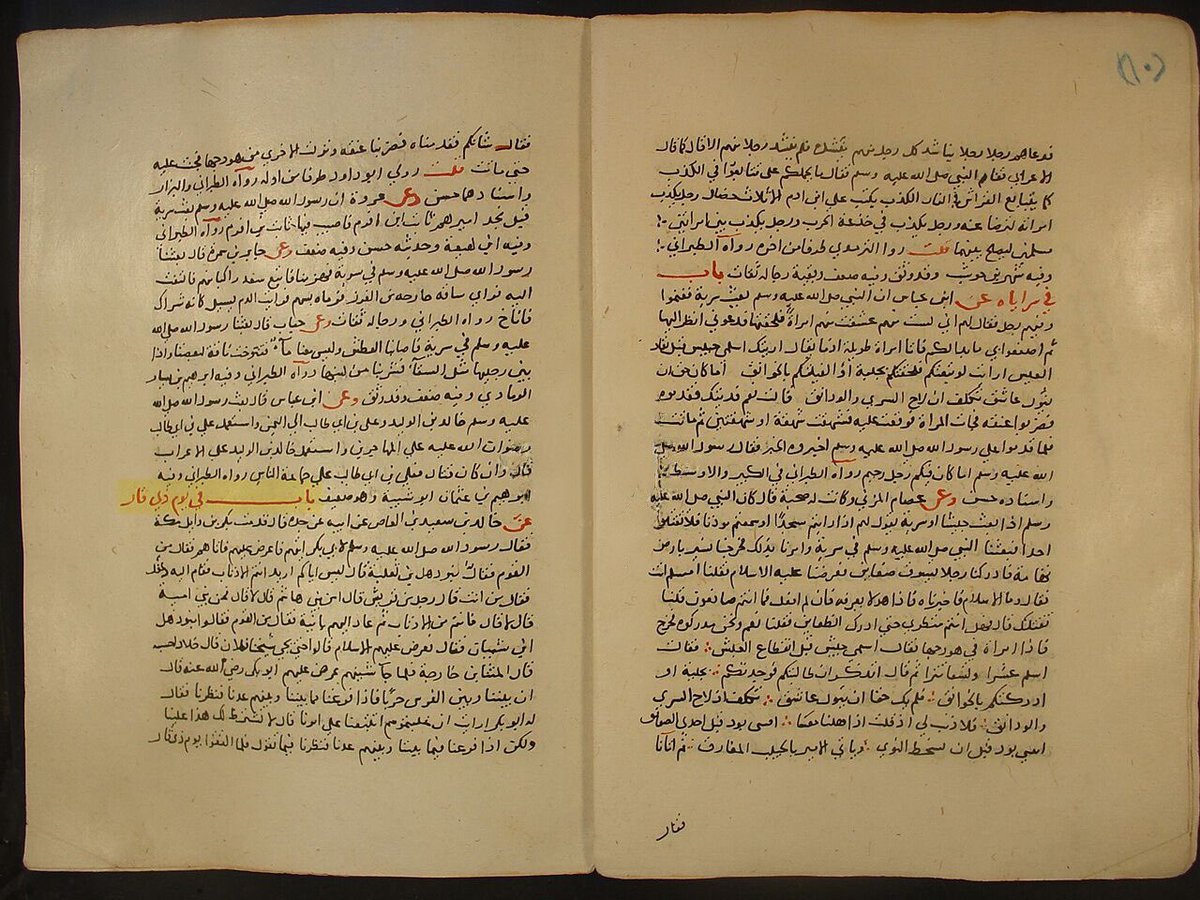 (١٠)
فدعاهم رجلا رجلا يناشد كل رجل منهم بنشده فلم ينشد رجلا منهم الا قال كما قال
الاعرابي فقام النبي صلى الله عليه وسلم فقال ما يحملكم على ان تتابعوا في الكذب
كما يتتابع الفراش في النار الكذب يكتب على ابن ادم الا ثلاث خصال رجل يكذب
امراته لترضا عنه ورجل يكذب في خدعة الحرب ورجل يكذب بين امرائين
مسلمين ليصلح بينهما قلت روا الترمذي طرفا من اخره رواه الطبراني
وفيه شهر بن حوشب وقد وثق وفيه ضعف وبقية رجاله ثقات باب
في سراياه عن ابن عباس ان النبي صلى الله عليه وسلم بعث سرية فغنموا
وفيهم رجل فقال لهم اني لست منهم عشقت منهم امراة فلحقتها فدعوني انظر اليها
ثم اصنعوا بي ما بدا لكم فاذا امراة طويلة ادما فقال لها اسلمي حبيش قبل نفاد
العيش ارايت لو تبعتكم فلحقتكم بحلية او الفيتكم بالخوانق اما كان حقا ان
ينول عاشق تكلف ادلاج السري والودائق قالت نعم فديتك فقدموه
فضربوا عنقه فجات المراة فوقعت عليه فشهقت شهقة او شهقتين ثم ماتت
فلما قدموا على رسول الله صلى الله عليه وسلم اخبروه الخبر فقال رسول الله صلى
الله عليه وسلم اما كان فيكم رجل رحيم رواه الطبراني في الكبير والاوسط
واسناده حسن وعن عصام المزني وكانت له صحبة قال كان النبي صلى الله عليه
وسلم اذا بعث جيشا او سرية يقول لهم اذا رايتم مسجدا او سمعتم موذنا فلا تقتلوا
احدا فبعثنا النبي صلى الله عليه وسلم في سرية وامرنا بذلك فخرجنا نسير بارض
تهامة فادركنا رجلا يسوق ضغاين فعرضنا عليه الاسلام فقلنا امسلم انت
فقال وما الاسلام فاخبرناه فاذا هو لا يعرفه قال ان لم افعل فما انتم صانعون قلنا
نقتلك قال فهل انتم منتظري حتى ادرك الظغاين فقلنا نعم ونحن مدركوه فخرج
فاذا امراة في هودجها فقال اسلمي حبيش قبل انقطاع العيش فقالت
اسلم عشرا وتسعا تترا ثم قال اتذكر ان طالبتكم فوجدتكم بحلية او
ادركتكم بالخوانق فلم يك حقا ان ينول عاشق تكلف ادلاج السري
والودائق فلا ذنب لي اذ قلت اذ اهلنا معا اثيبي بود قبل احدى الصفائق
اثيبي بود قبل ان تشحط النوي وياتي الامير بالحبيب المفارق ثم اتانا
فقال
فقال شانكم فقدمناه فضربنا عنقه ونزلت الاخري من هودجها فجثت عليه
حتى ماتت قلت روي ابو داود طرفا من اوله رواه الطبراني والبزار
واسنادهما حسن وعن عروة ان رسول الله صلى الله عليه وسلم بعث سرية
قبل نجد اميرهم ثابت ابن اقرم فاصيب فيها ثابت بن اقرم رواه الطبراني
وفيه ابن لهيعة وحديثه حسن وفيه ضعف وعن جابر بن سمرة قال بعثنا
رسول الله صلى الله عليه وسلم في سرية فهزمنا فاتبع سعد راكبا منهم فالتفت
اليه فراي ساقه خارجه من الغرز فرماه بسهم فرايت الدم يسيل كانه شراك
فاناخ رواه الطبراني ورجاله ثقات وعن خباب قال بعثنا رسول الله صلى الله
عليه وسلم في سرية فاصابنا العطش وليس معنا ماء فتنوخت ناقة لبعضنا واذا
بين رجليها مثل السقاء فشربنا من لبنها رواه الطبراني وفيه ابراهيم بن بشار
الرمادي وفيه ضعف وقد وثق وعن ابن عباس قال بعث رسول الله صلى الله
عليه وسلم خالد بن الوليد وعلي بن ابي طالب الى اليمن واستعمل علي بن ابي طالب
رضوان الله عليه على المهاجرين واستعمل خالد بن الوليد على الاعراب
قال وان كان قتال فعلي بن ابي طالب على جماعة الناس رواه الطبراني وفيه
ابراهيم بن عثمان ابو شيبة وهو ضعيف باب في يوم ذي قار
عن خالد بن سعيد بن العاص عن ابيه عن جده قال قدمت بكر بن وائل مكة
فقال رسول الله صلى الله عليه وسلم لابي بكر ائتهم فاعرض عليهم فاتاهم فقال من
القوم فقالوا بنو ذهل بن ثعلبة قال ليس اياكم اريد انتم الاذناب فقام اليه دغفل
فقال من انت قال رجل من قريش قال امن بني هاشم قال لا قال فمن بني امية
قال لا قال فانتم من الاذناب ثم عاد اليهم ثانية فقال من القوم فقالوا بنو ذهل
ابن شيبان فقال نعرض عليهم الاسلام قالوا حتى يجي شيخنا فلان قال خلاد احسبه
قال المثنى بن خارجة فلما جا شيخهم عرض عليهم ابو بكر رضي الله عنه قال
ان بيننا وبين الفرس حربا فاذا فرغنا مما بيننا وبينهم عدنا فنظرنا فقال
له ابو بكر ارايت ان غلبتموهم اتتبعنا على امرنا قال لا نشترط لك هذا علينا
ولكن اذا فرغنا فيما بيننا وبينهم عدنا فنظرنا فيما تقول فلما التقوا يوم ذي قار